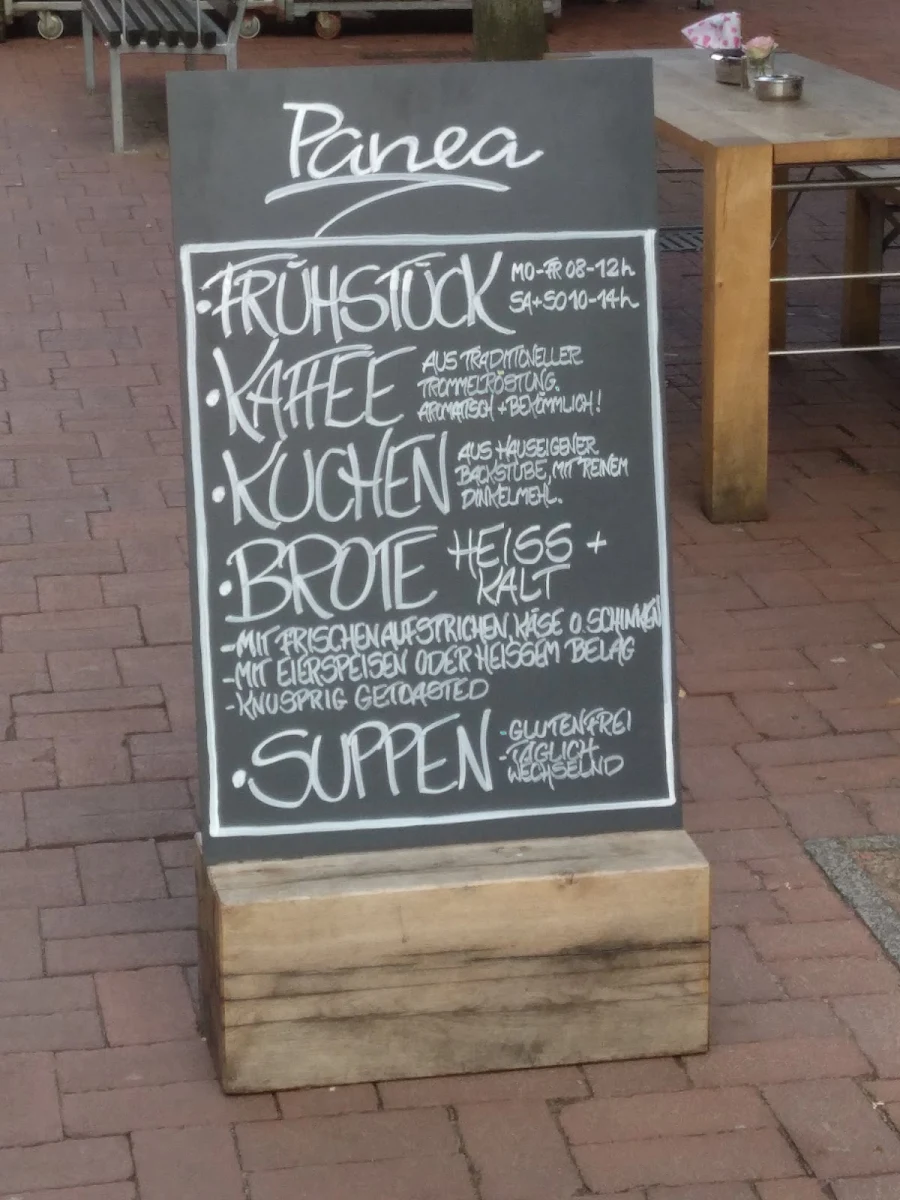 Panea
• FRÜHSTÜCK MO-FR 08-12h
SA+SO 10-14h
• KAFFEE AUS TRADITIONELLER
TROMMELRÖSTUNG.
AROMATISCH + BEKÖMMLICH!
• KUCHEN AUS HAUSEIGENER
BACKSTUBE, MIT REINEM
DINKELMEHL.
• BROTE HEISS +
KALT
- MIT FRISCHEN AUFSTRICHEN, KÄSE O. SCHINKEN
- MIT EIERSPEISEN ODER HEISSEM BELAG
- KNUSPRIG GETOASTED
• SUPPEN - GLUTENFREI
- TÄGLICH
WECHSELND